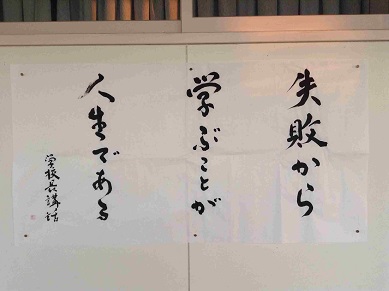 失敗から
学ぶことが
人生である
学校長講話